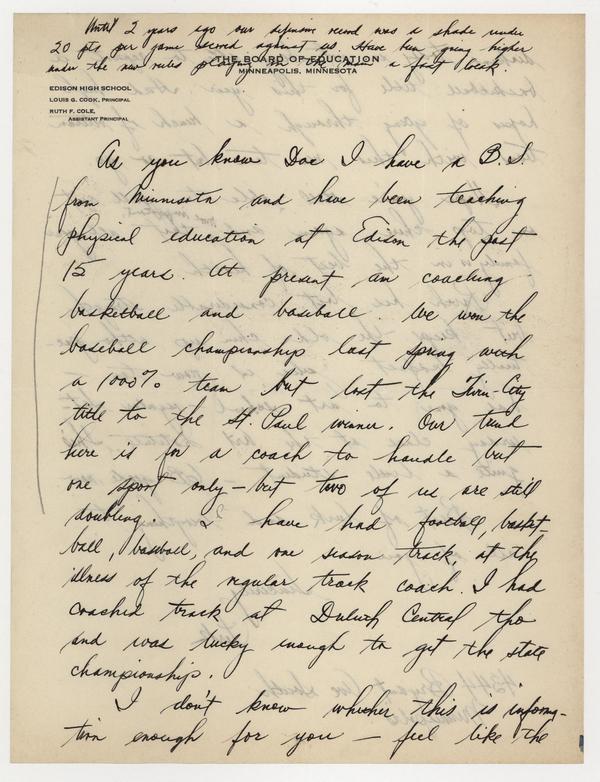 Until 2 years ago our defensive record was a shade under
20 pts per game scored against us. Have been going higher
under the new rules playing a fast break.
THE BOARD OF EDUCATION
MINNEAPOLIS, MINNESOTA
EDISON HIGH SCHOOL
LOUIS G. COOK, PRINCIPAL
RUTH F. COLE,
ASSISTANT PRINCIPAL
As you know Doc I have a B.S.
from Minnesota and have been teaching
physical education at Edison the past
15 years. At present am coaching
basketball and baseball. We won the
baseball championship last spring with
a 1000% team but lost the Twin-City
title to the St. Paul winner. Our trend
here is for a coach to handle but
one sport only – but two of us are still
doubling. I have had football, basket-
ball, baseball, and one season track, at the
illness of the regular track coach. I had
coached track at Duluth Central tho
and was lucky enough to get the state
championship.
I don't know whether this is informa-
tion enough for you – feel like the